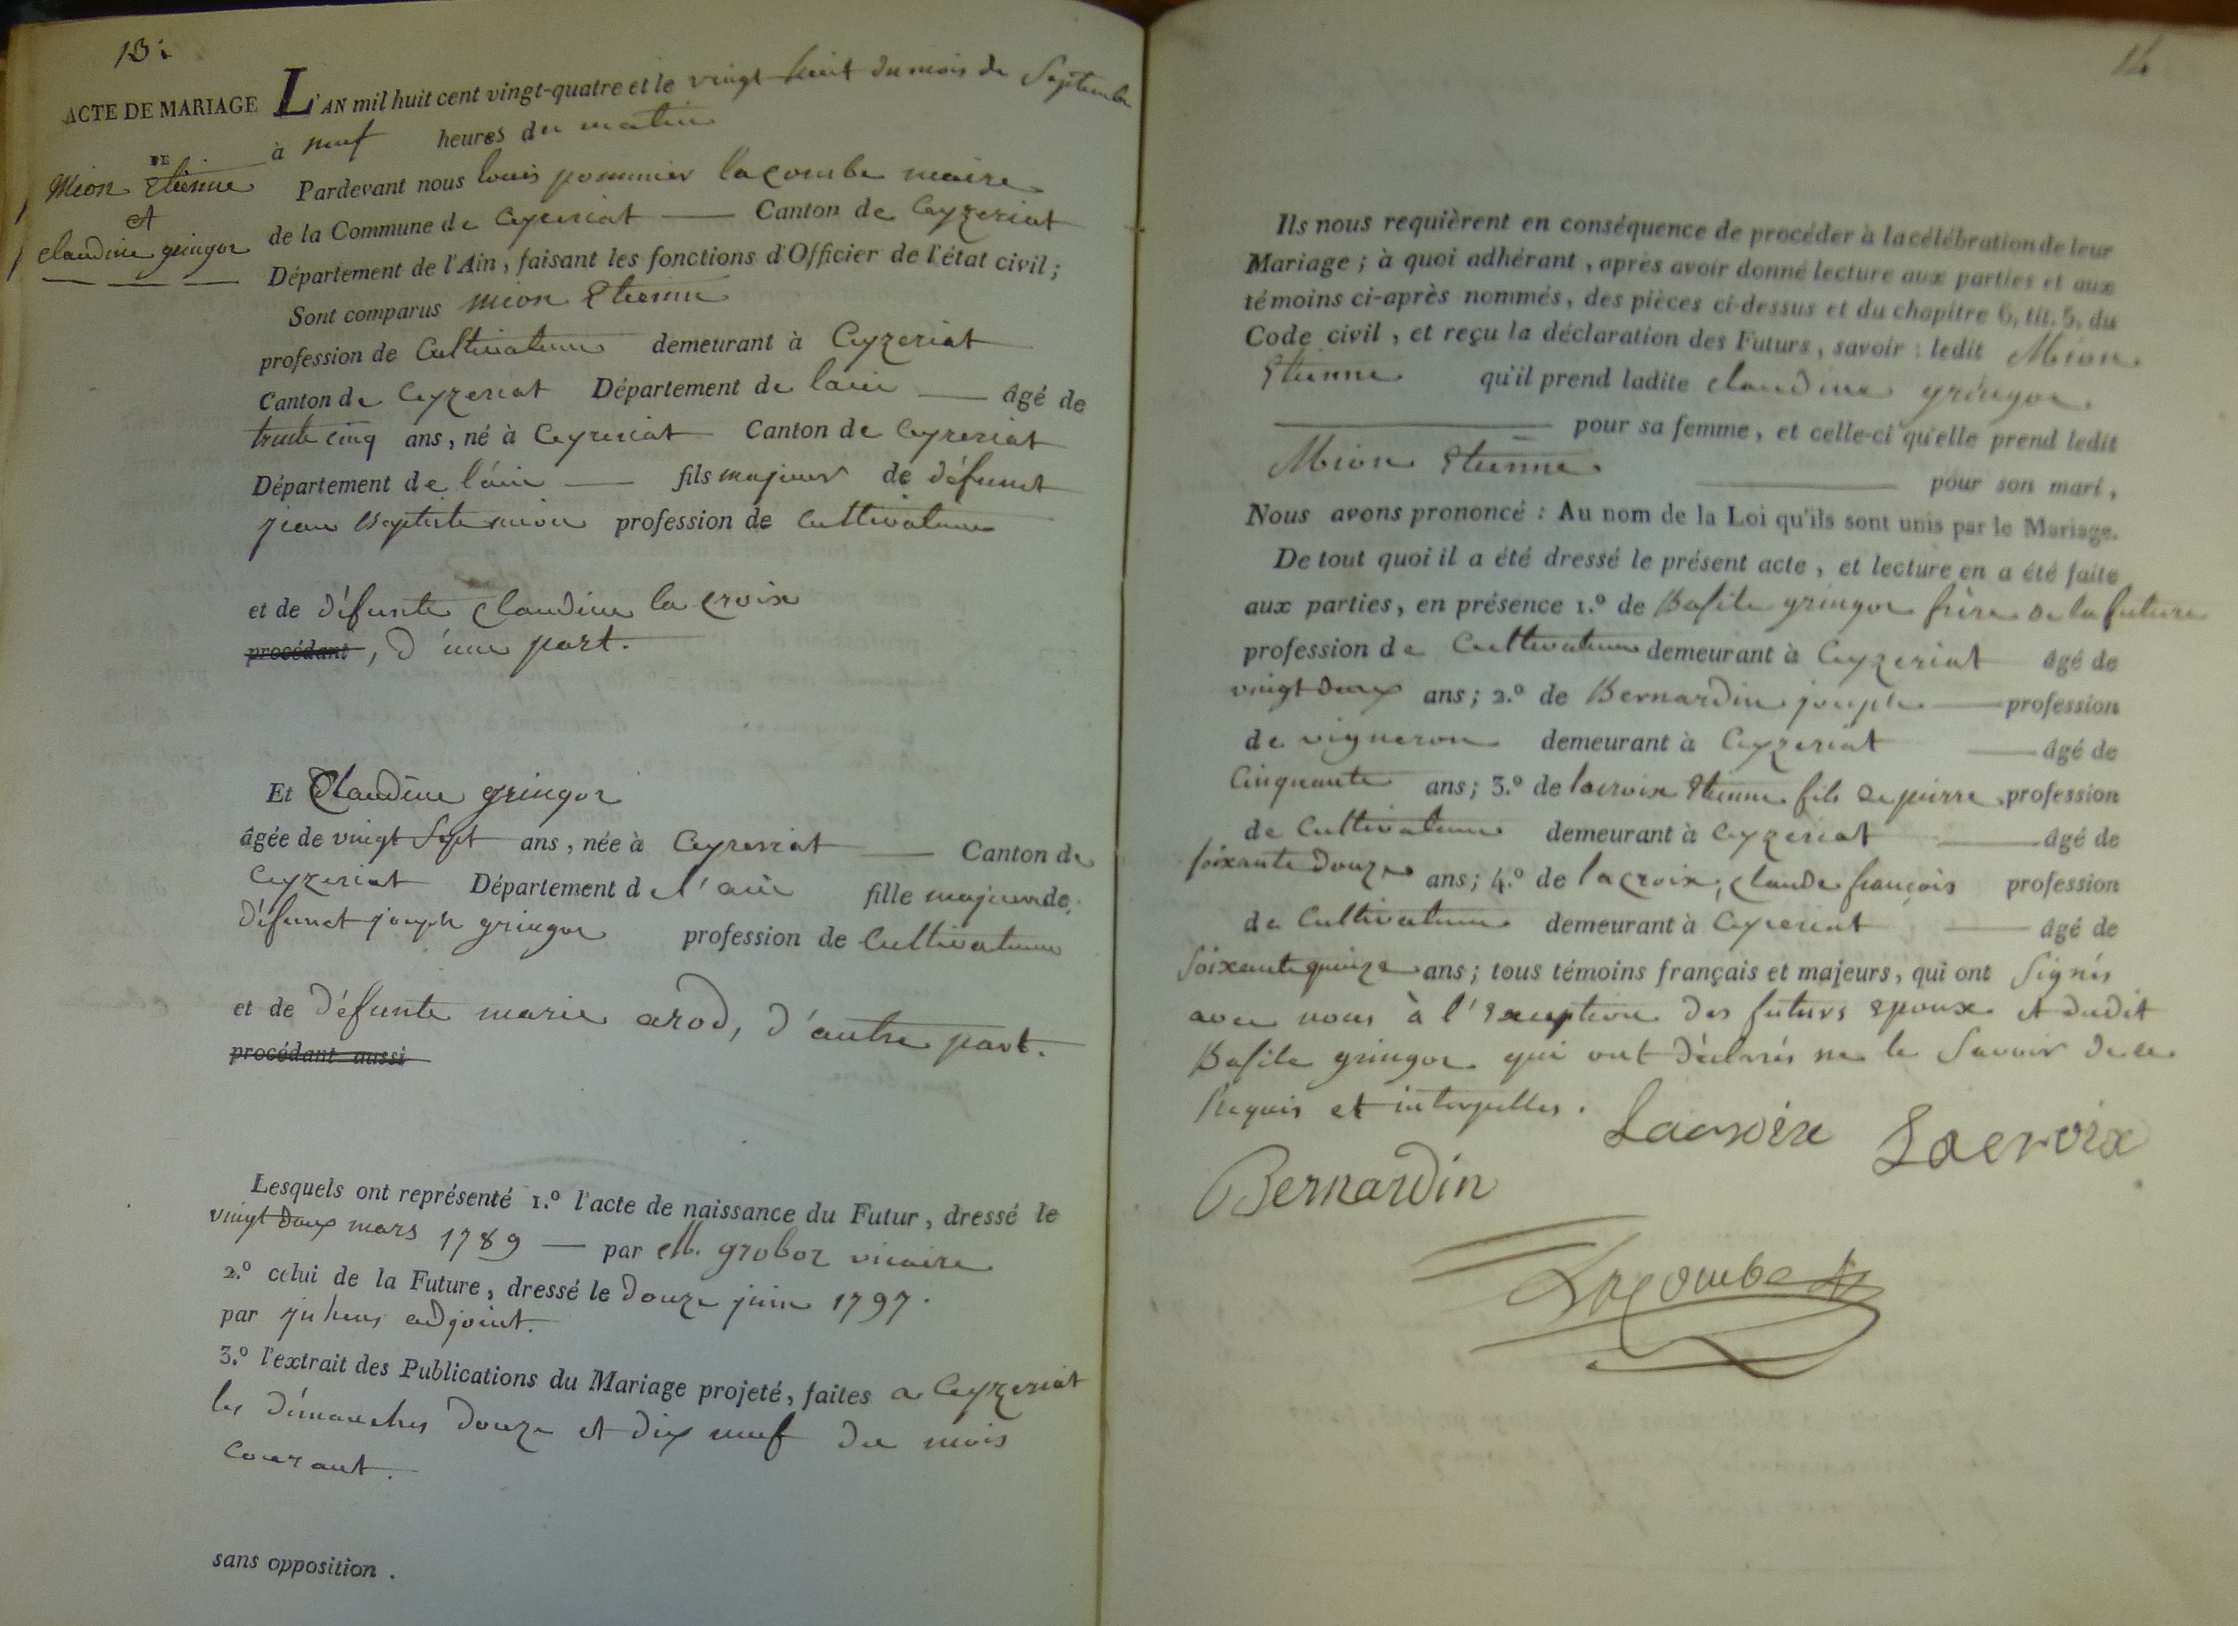 13.
ACTE DE MARIAGE
DE
Mion Etienne
et
Claudine gringoz
L'AN mil huit cent vingt-quatre et le vingt huit du mois de Septembre
à neuf heures du matin
Pardevant nous louis pommier lacombe maire
de la Commune de Ceyzeriat Canton de Ceyzeriat
Département de l'Ain, faisant les fonctions d'Officier de l'état civil;
Sont comparus Mion Etienne
profession de Cultivateur demeurant à Ceyzeriat
Canton de Ceyzeriat Département de lain âgé de
trente cinq ans, né à Ceyzeriat Canton de Ceyzeriat
Département de l'ain fils majeur de défunt
jean Baptiste mion profession de Cultivateur
et de défunte Claudine la croix
procédant, d'une part.
Et Claudine gringoz
âgée de vingt sept ans, née à Ceyzeriat Canton de
Ceyzeriat Département de l'ain fille majeure de
défunct joseph gringoz profession de Cultivateur
et de défunte marie arod, d'autre part.
procédant aussi
Lesquels ont représenté 1.º l'acte de naissance du Futur, dressé le
vingt deux mars 1789 par M. groboz vicaire
2.º celui de la Future, dressé le douze juin 1797.
par adjoint.
3.º l'extrait des Publications du Mariage projeté, faites a Ceyzeriat
les dimanches douze et dix neuf du mois
courant.
sans opposition.
14
Ils nous requièrent en conséquence de procéder à la célébration de leur
Mariage; à quoi adhérant, après avoir donné lecture aux parties et aux
témoins ci-après nommés, des pièces ci-dessus et du chapitre 6, tit. 5, du
Code civil, et reçu la déclaration des Futurs, savoir: ledit Mion
Etienne qu'il prend ladite claudine gringoz
pour sa femme, et celle-ci qu'elle prend ledit
Mion Etienne
pour son mari,
Nous avons prononcé: Au nom de la Loi qu'ils sont unis par le Mariage.
De tout quoi il a été dressé le présent acte, et lecture en a été faite
aux parties, en présence 1.º de Basile gringoz frère de la future
profession de Cultivateur demeurant à Ceyzeriat âgé de
vingt deux ans; 2.º de Bernardin joseph profession
de vigneron demeurant à Ceyzeriat âgé de
Cinquante ans; 3.º de lacroix Etienne fils de pierre profession
de Cultivateur demeurant à Ceyzeriat âgé de
soixante douze ans; 4.º de lacroix, claude françois profession
de Cultivateur demeurant à Ceyzeriat âgé de
soixante quinze ans; tous témoins français et majeurs, qui ont signés
avec nous à l'exception des futurs epoux et dudit
Basile gringoz qui ont déclarés ne le savoir de ce
Requis et interpellés.
Lacroix Lacroix
Bernardin
Lacombe